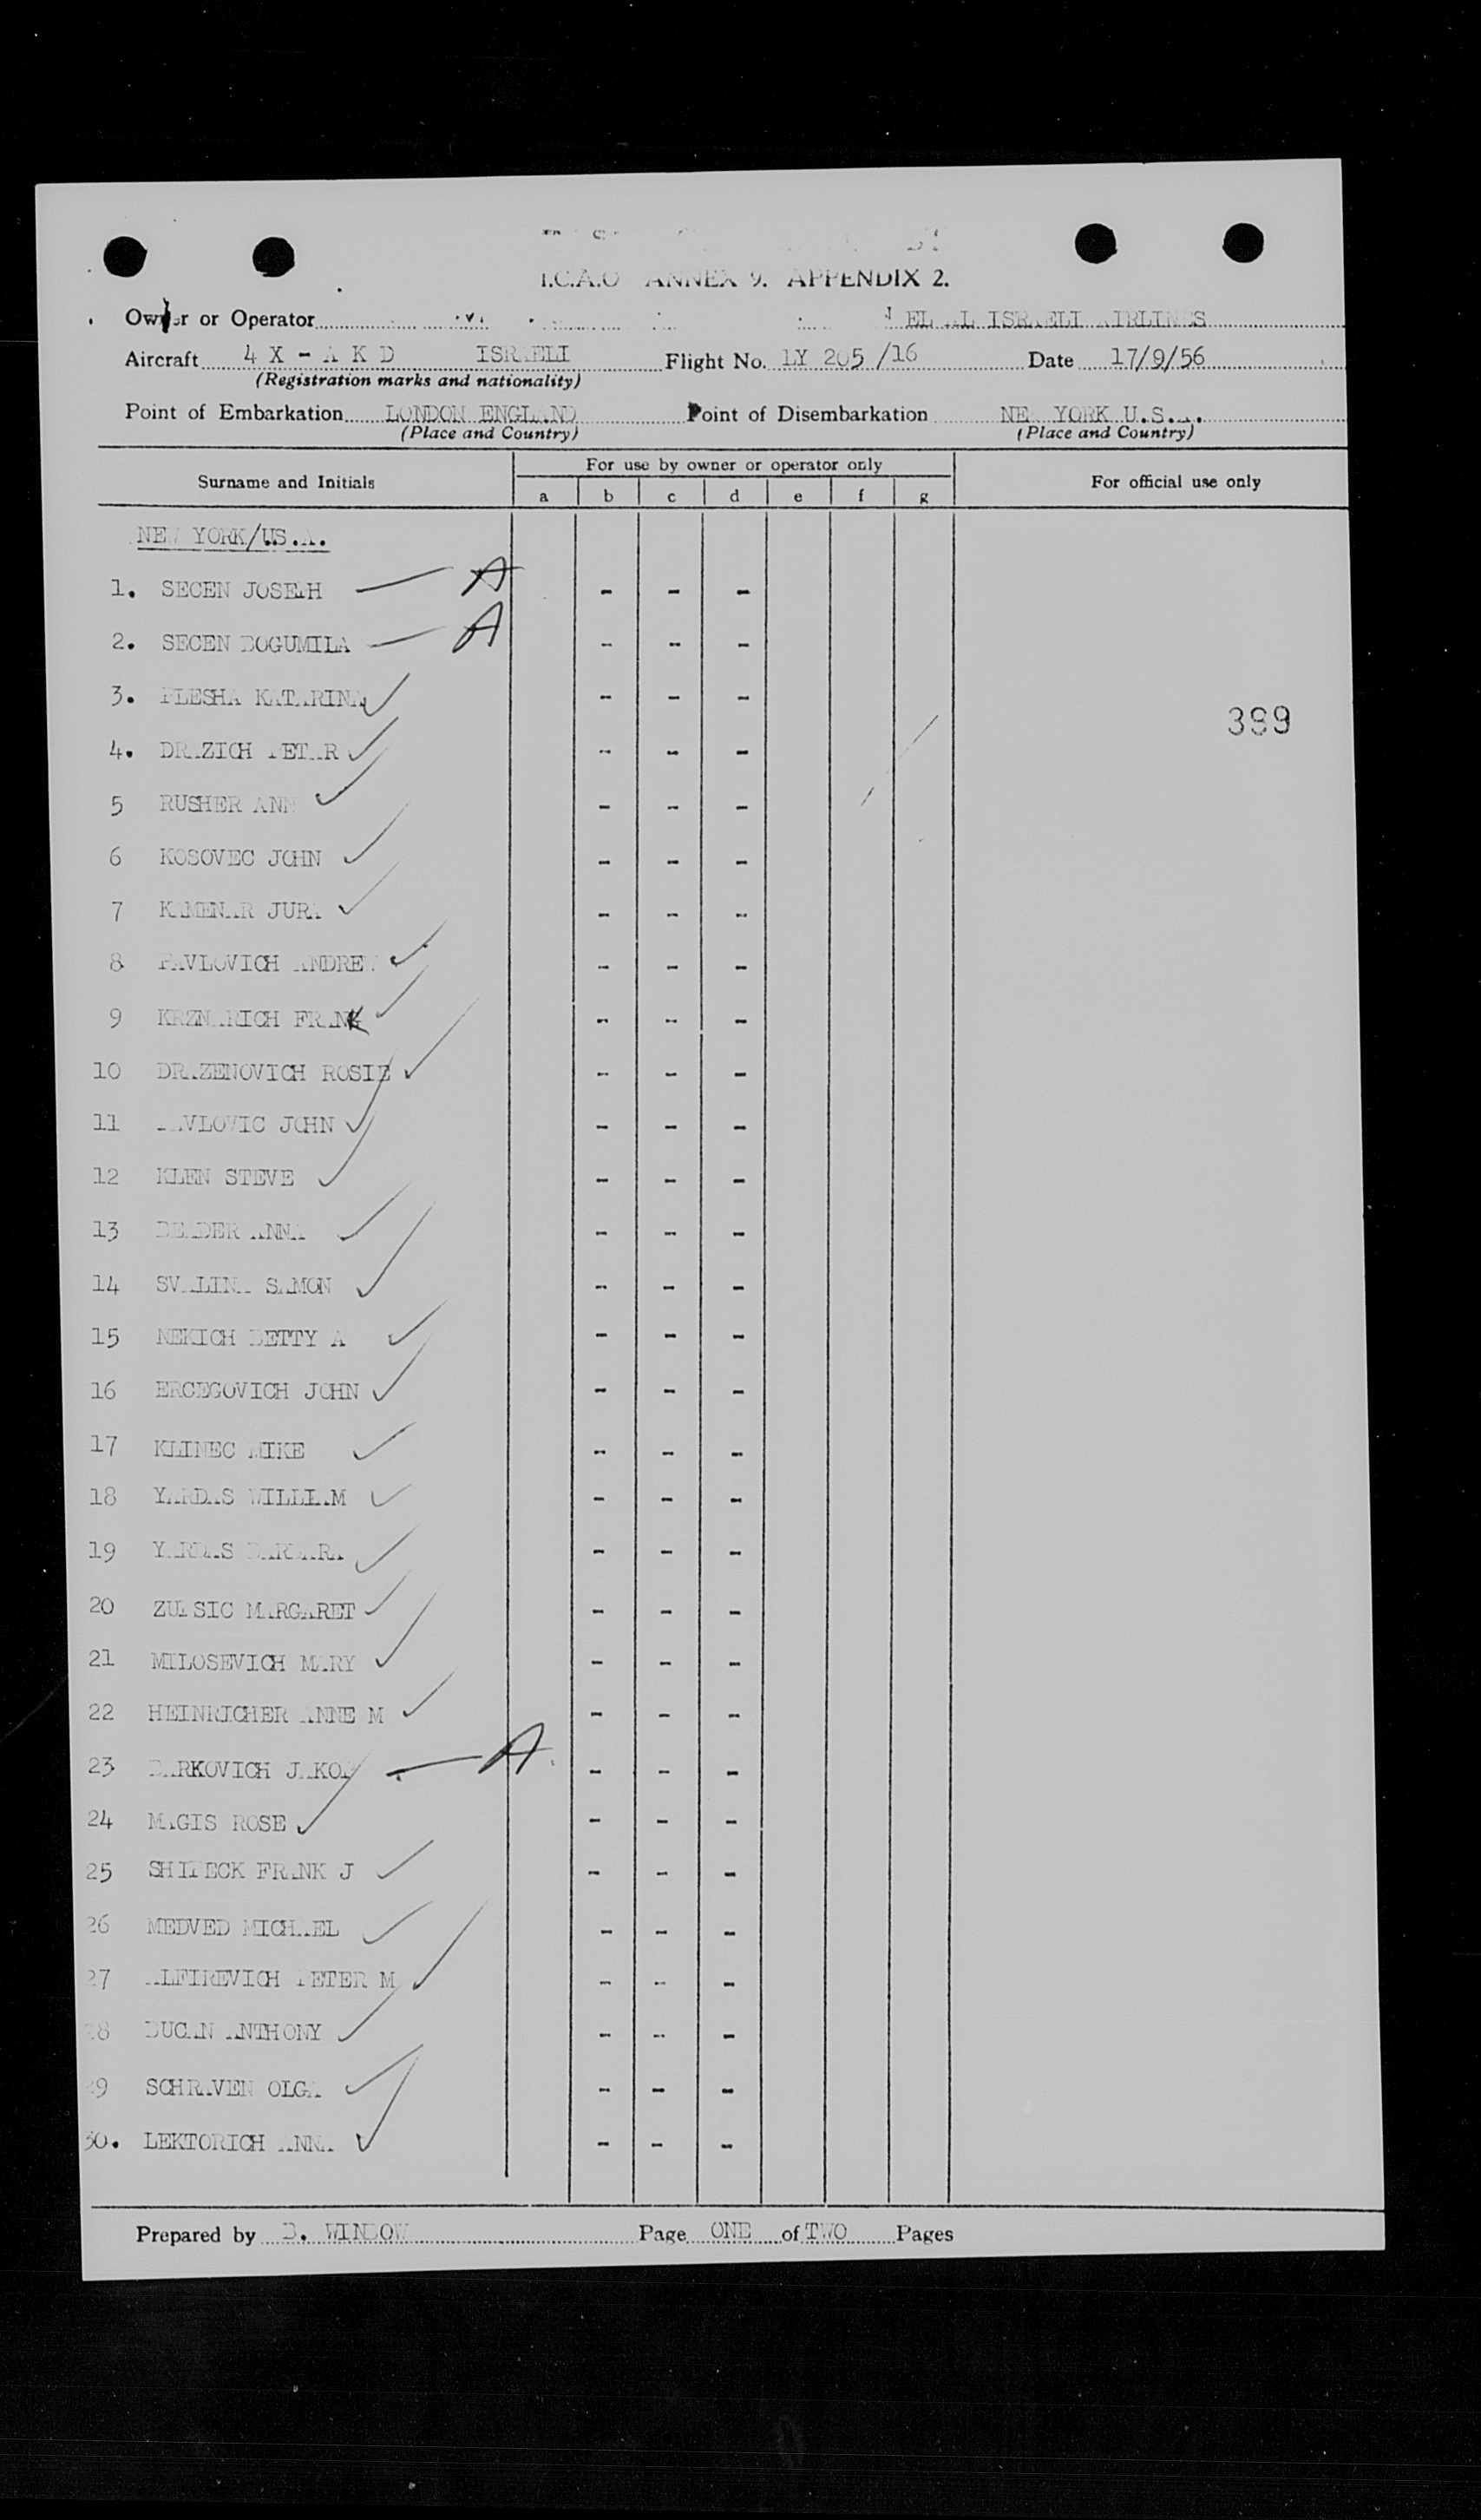 I.C.A.O ANNEX 9. APPENDIX 2.
Owner or Operator EL AL ISRAELI AIRLINES
Aircraft 4 X - A K D ISRAELI Flight No. LY 205 /16 Date 17/9/56
(Registration marks and nationality)
Point of Embarkation LONDON ENGLAND Point of Disembarkation NEW YORK U.S.A.
(Place and Country) (Place and Country)
Surname and Initials For use by owner or operator only For official use only
a b c d e f g
NEW YORK/U.S.A.
1. SECEN JOSEPH — A - - -
2. SECEN BOGUMILA — A - - -
3. PLESHA KATARINA ✓ - - -
399
4. DRAZICH PETAR ✓ - - -
5 RUSHER ANN ✓ - - -
6 KOSOVEC JOHN ✓ - - -
7 KAMENAR JURA ✓ - - -
8 PAVLOVICH ANDREW ✓ - - -
9 KRZNARICH FRANK ✓ - - -
10 DRAZENOVICH ROSIE ✓ - - -
11 PAVLOVIC JOHN ✓ - - -
12 KLEN STEVE ✓ - - -
13 ANNA ✓ - - -
14 SVALINA SAMON ✓ - - -
15 NEKICH BETTY A ✓ - - -
16 ERCEGOVICH JOHN ✓ - - -
17 KLINEC MIKE ✓ - - -
18 YARDAS WILLIAM ✓ - - -
19 YARDAS BARBARA ✓ - - -
20 MARGARET ✓ - - -
21 MILOSEVICH MARY ✓ - - -
22 HEINRICHER ANNE M ✓ - - -
23 BARKOVICH JAKOB — A - - -
24 MAGIS ROSE ✓ - - -
25 FRANK J ✓ - - -
26 MEDVED MICHAEL ✓ - - -
27 ALFIREVICH PETER M ✓ - - -
28 ANTHONY ✓ - - -
29 SCHRAVEN OLGA ✓ - - -
30. LEKTORICH ANNA ✓ - - -
Prepared by Page ONE of TWO Pages